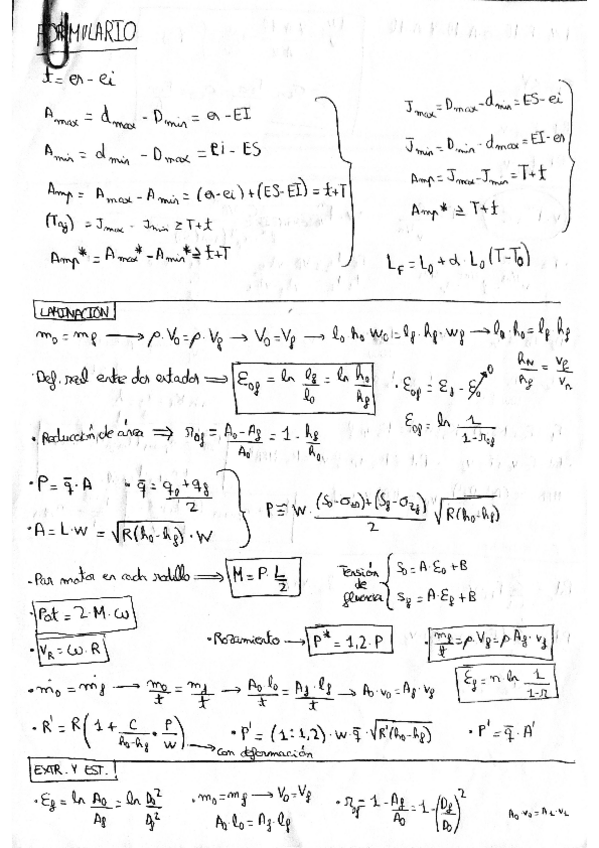 FORMULARIO
t = es - ei
Amax = dmax - Dmin = es - EI
Amin = dmin - Dmax = ei - ES
Amp = Amax - Amin = (es-ei)+(ES-EI) = t+T
(Taj) = Jmax - Jmin ≥ T+t
Amp* = Amax* - Amin* ≥ t+T
Jmax = Dmax - dmin = ES - ei
Jmin = Dmin - dmax = EI - es
Amp = Jmax - Jmin = T+t
Amp* ≥ T+t
LF = L0 + α · L0 (T - T0)
LAMINACIÓN
m0 = mf → ρ·V0 = ρ·Vf → V0 = Vf → l0·h0·w0 = lf·hf·wf → l0·h0 = lf·hf
hN/hf = vf/vn
· Def. real entre dos estados ⇒ ε0f = ln lf/l0 = ln h0/hf
· ε0f = εf - ε0 0
ε0f = ln 1/(1-r0f)
· Reducción de área ⇒ r0f = (A0-Af)/A0 = 1 - hf/h0
· P = q̄·A · q̄ = (q0+qf)/2
· A = L·w = √R(h0-hf) · w
P = w · ((S0-σx0)+(Sf-σxf))/2 √R(h0-hf)
· Par motor en cada rodillo ⇒ M = P · L/2
Tensión de fluencia { S0 = A·ε0+B
Sf = A·εf+B
· Pot = 2·M·ω
· VR = ω·R
· Rozamiento → P* = 1,2·P
· mf/t = ρ·Vf = ρ·Af·vf
· ṁ0 = ṁf → m0/t = mf/t → A0·l0/t = Af·lf/t → A0·v0 = Af·vf
εf = n·ln 1/(1-r)
· R' = R(1 + C/(h0-hf) · P/w) → con deformación
· P' = (1:1,2)·w·q̄·√R'(h0-hf)
· P' = q̄·A'
EXTR. Y EST.
· εf = ln A0/Af = ln D0²/Df²
· m0 = mf → V0 = Vf
A0·l0 = Af·lf
· rf = 1 - Af/A0 = 1 - (Df/D0)²
A0·v0 = AL·vL